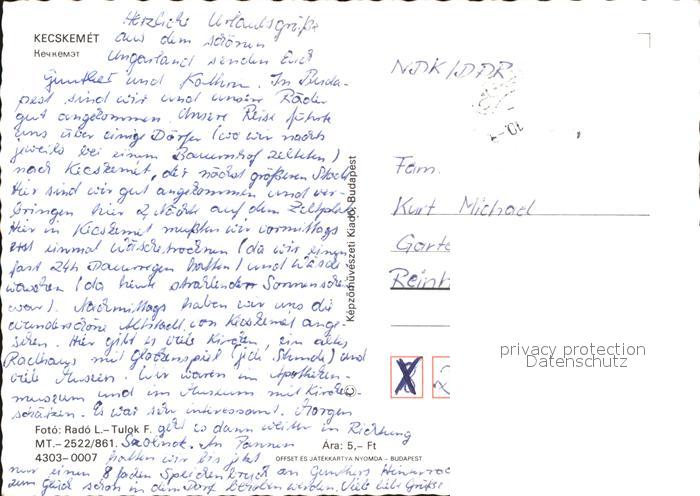 Herzliche Urlaubsgrüße
KECSKEMÉT
aus dem schönen
Кечкемэт
Ungarland senden Euch
Gunther und Kathrin. In Buda-
pest sind wir und unsere Räder
gut angekommen. Unsere Reise führte
uns über einige Dörfer (wo wir nachts
jeweils bei einem Bauernhof zelteten)
nach Kecskemét, der nächst größeren Stadt.
Hier sind wir gut angekommen und ver-
bringen hier 2 Nächte auf dem Zeltplatz.
Hier in Kecskemét mußten wir vormittags
erst einmal Wäsche trocknen (da wir einen
fast 24h Dauerregen hatten) und Wäsche
waschen (da heute strahlender Sonnenschein
war). Nachmittags haben wir uns die
wunderschöne Altstadt von Kecskemét ange-
sehen. Hier gibt es viele Kirchen, ein altes
Rathaus mit Glockenspiel (jede Stunde) und
viele Museen. Wir waren im Apotheken-
museum und im Museum mit Kirchen-
schätzen. Es war sehr interessant. Morgen
geht es dann weiter in Richtung
Szolnok. An Pannen
hatten wir bis jetzt
nur einen 8 fachen Speichenbruch an Gunthers Hinterrad
zum Glück schon in dem Dorf werden. Viele liebe Grüße
Fotó: Radó L.– Tulok F.
MT.– 2522/861. Ára: 5,– Ft
4303–0007 OFFSET ÉS JÁTÉKKÁRTYA NYOMDA – BUDAPEST
Képzőművészeti Kiadó, Budapest
NDK/DDR
Fam.
Kurt Michael
Garte
Reinh
8 2
privacy protection
Datenschutz